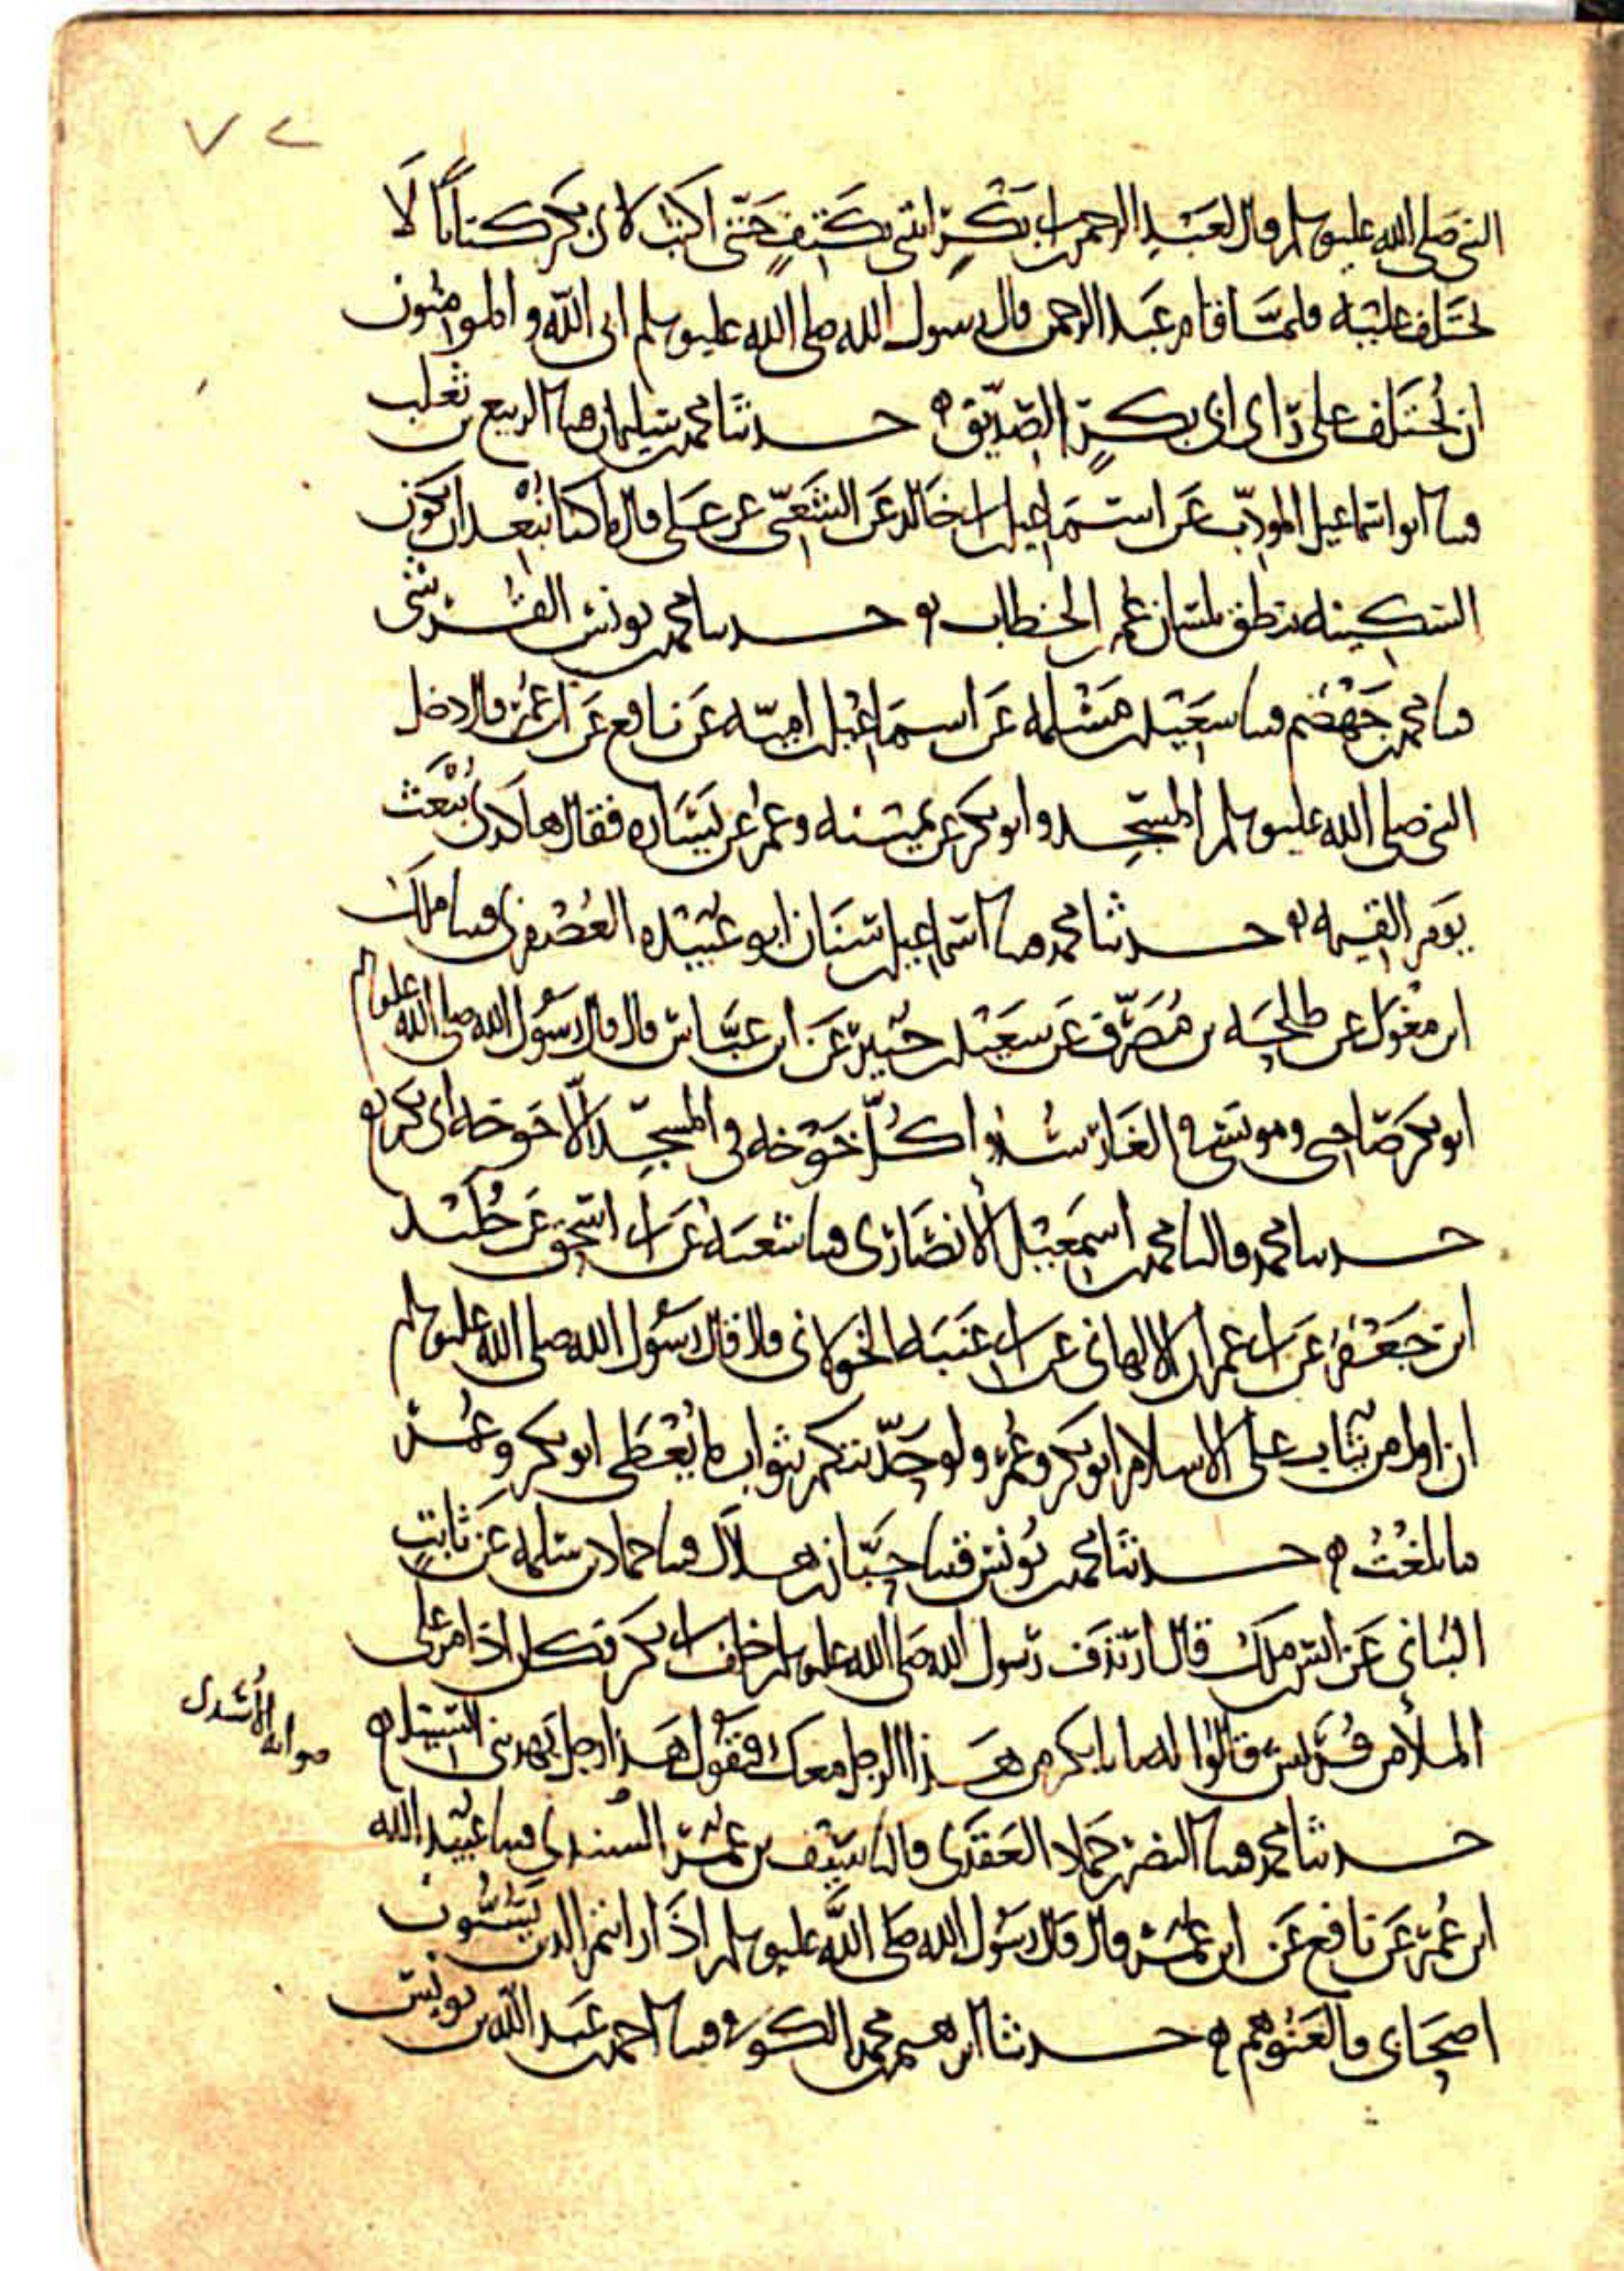 ٧٢
النبي صلى الله عليه وسلم قال لعبد الرحمن بن ابي بكر ائتني بكتف حتى اكتب لابي بكر كتابا لا
يختلف عليه فلما قام عبد الرحمن قال رسول الله صلى الله عليه وسلم ابى الله والمومنون
ان يختلف على ابي بكر الصديق ه حدثنا محمد بن سليمان ثنا الربيع بن ثعلب
ثنا ابو اسماعيل المودب عن اسماعيل بن ابي خالد عن الشعبي عن علي قال ما كنا نبعد ان تكون
السكينه تنطق بلسان عمر بن الخطاب ه حدثنا محمد بن يونس القرشي
ثنا محمد بن جهضم ثنا سعيد بن مسلمه عن اسماعيل بن اميه عن نافع عن ابن عمر قال دخل
النبي صلى الله عليه وسلم المسجد وابو بكر عن يمينه وعمر عن يساره فقال هاكذى نبعث
يوم القيمه ه حدثنا محمد ثنا اسماعيل بن سنان ابو عبيده العصفري ثنا ملك
ابن مغول عن طلحه بن مصرف عن سعيد بن جبير عن ابن عباس قال قال رسول الله صلى الله عليه وسلم
ابو بكر صاحبي ومونسي في الغار سدوا كل خوخه في المسجد الا خوخه ابي بكر ه
حدثنا محمد قال ثنا محمد بن اسمعيل الانصاري ثنا شعبه عن ابي اسحق عن
ابن جعفر عن ابي عمران الالهاني عن ابي عنبه الخولاني قال قال رسول الله صلى الله عليه وسلم
ان اول من يثاب على الاسلام ابو بكر وعمر ولو حدثتكم بثواب ما يعطى ابو بكر وعمر
ما بلغت ه حدثنا محمد بن يونس ثنا حبان بن هلال ثنا حماد بن سلمه عن ثابت
البناني عن انس بن ملك قال ارتدف رسول الله صلى الله عليه وسلم خلف ابي بكر فكل اذا مر على
الملأ من قريش قالوا له يا ابا بكر من هذا الرجل معك فيقول هذا رجل يهديني السبيل ه
حدثنا محمد ثنا النضر بن حماد العقدي قال ثنا سيف بن عمر السندي ثنا عبيد الله
صوابه الأسدي
ابن عمر عن نافع عن ابن عمر قال قال رسول الله صلى الله عليه وسلم اذا رايتم الذين يسبون
اصحابي فالعنوهم ه حدثنا ابرهيم بن محمد الكوفي ثنا احمد بن عبد الله بن يونس